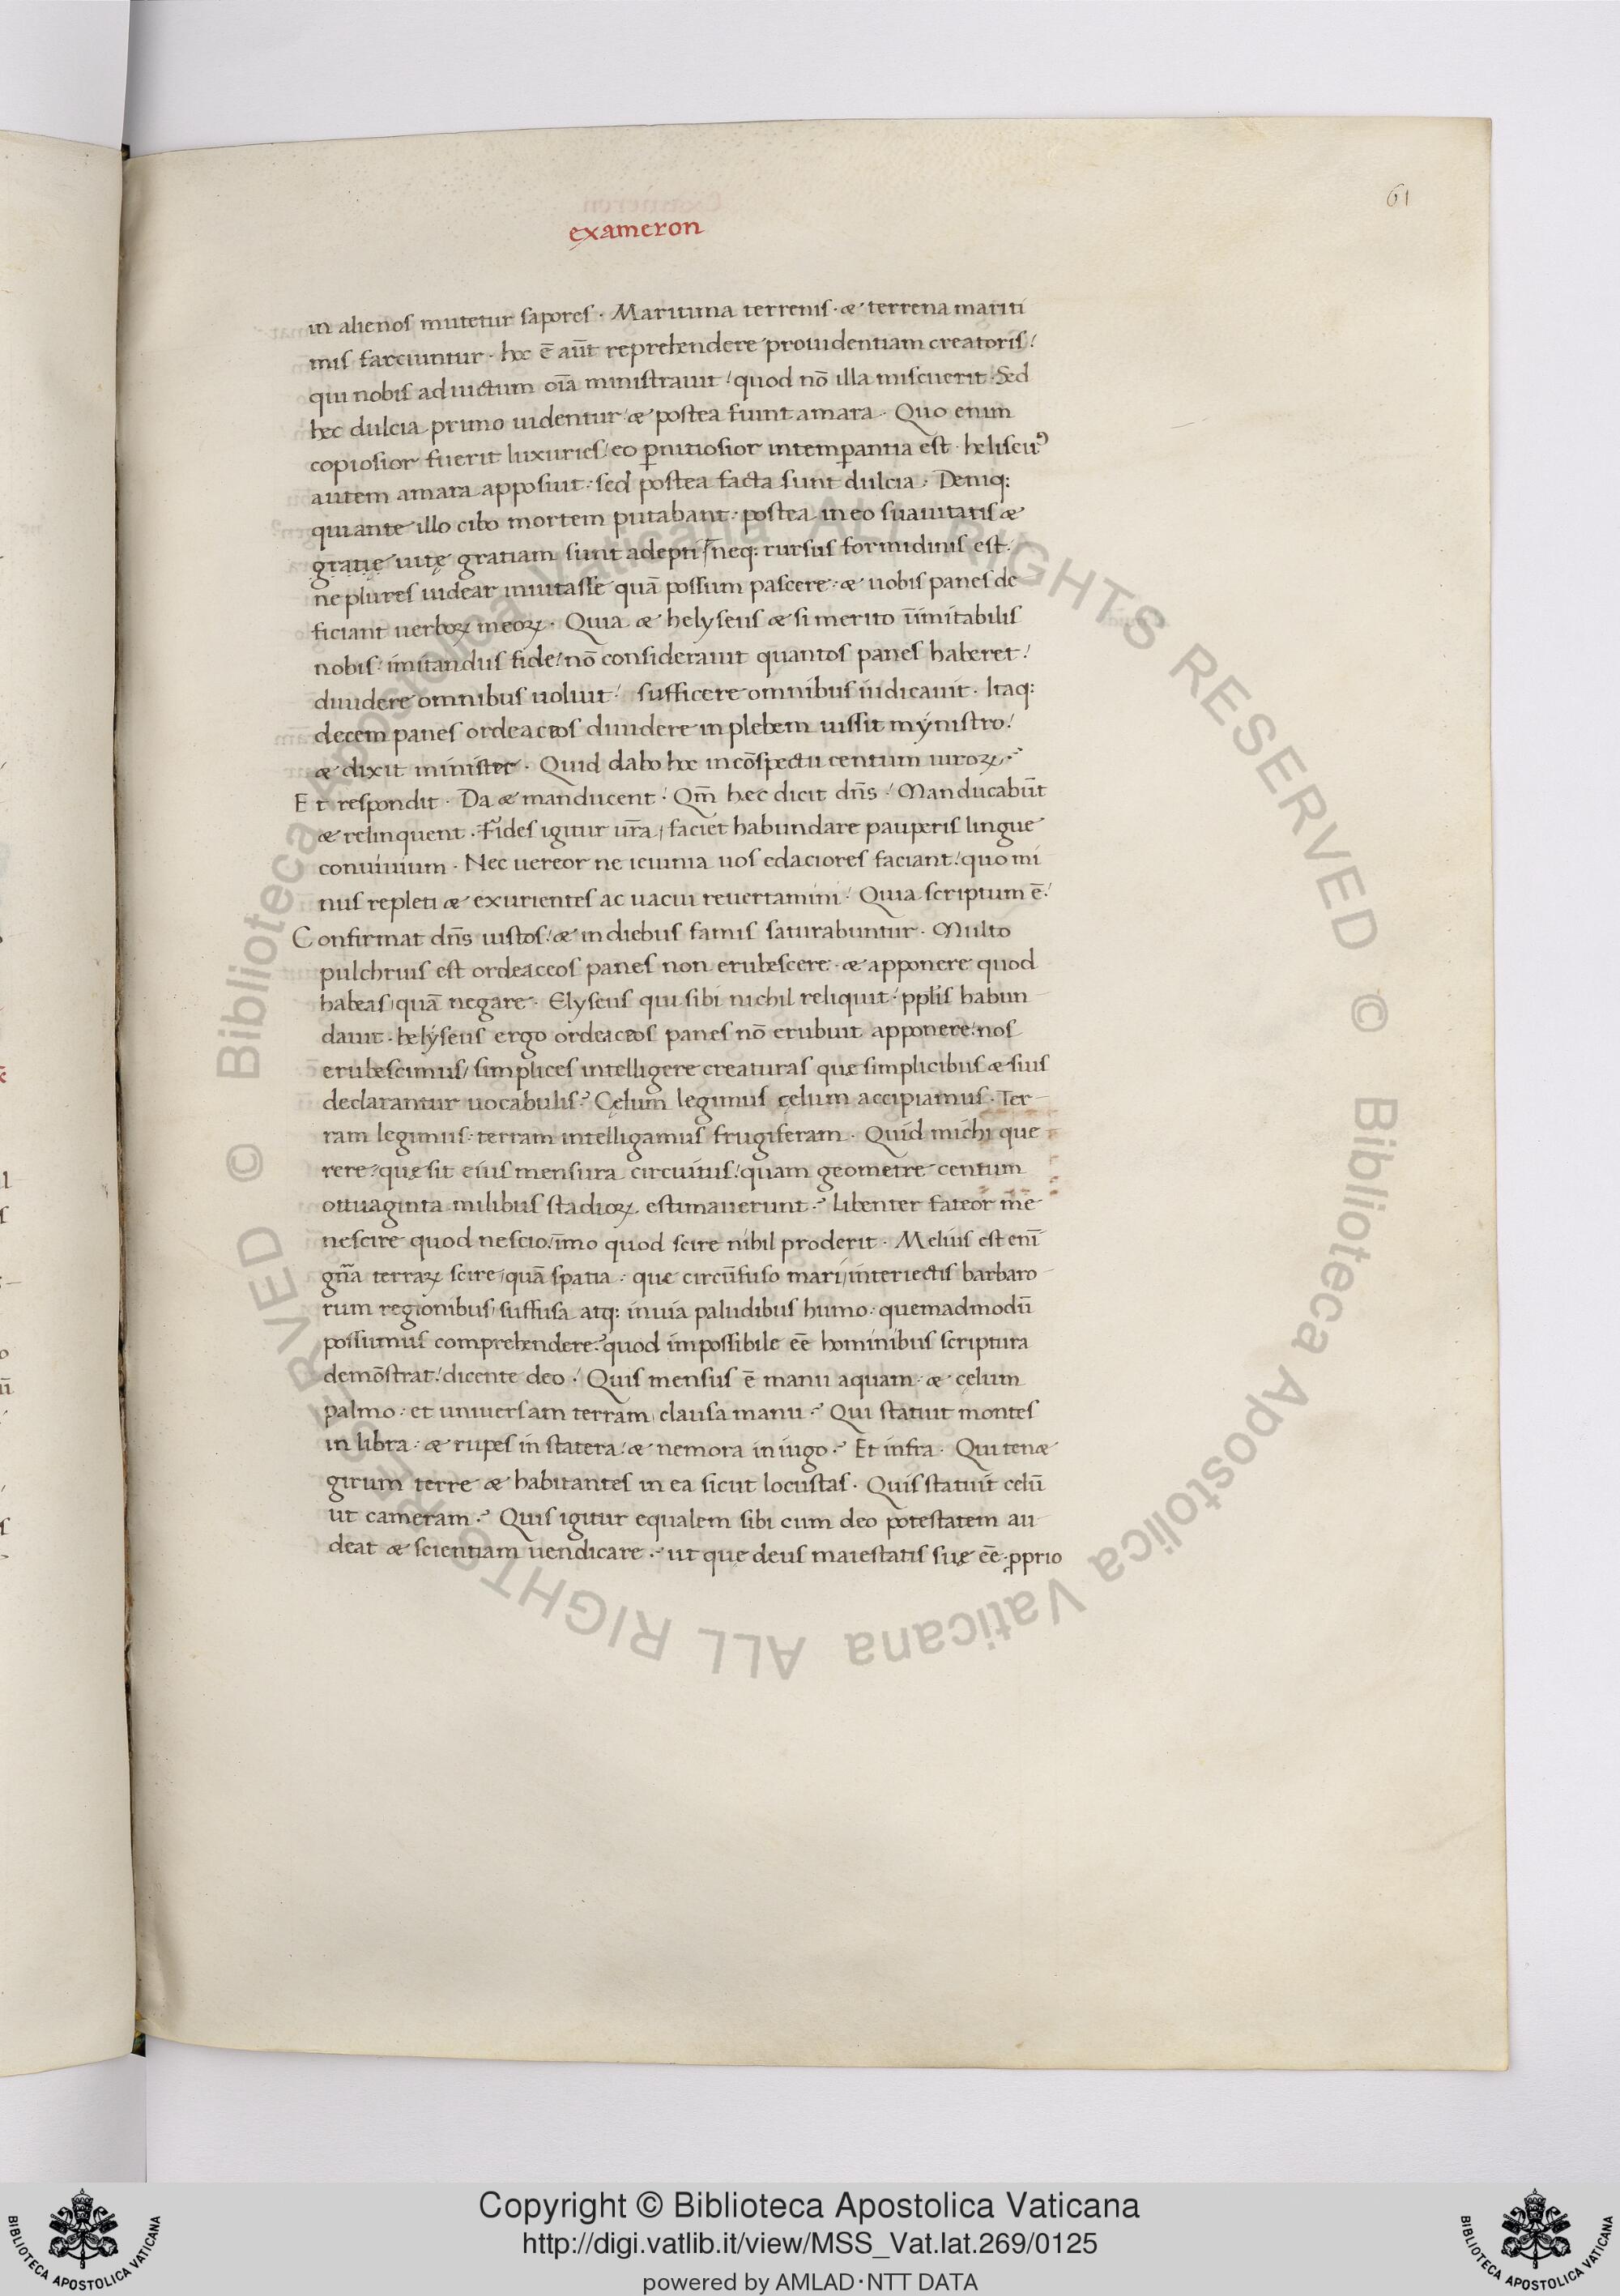 61
exameron
in alienos mutetur sapores · Maritima terrenis · & terrena mariti
mis farciuntur · hoc ē aūt reprehendere prouidentiam creatoris /
qui nobis ad uictum oīa ministrauit / quod nō illa miscuerit · Sed
hęc dulcia primo uidentur & postea fiunt amara · Quo enim
copiosior fuerit luxuries / eo ꝑnitiosior intemꝑantia est · heliseuꝰ
autem amara apposuit · sed postea facta sunt dulcia · Deniq:
qui ante illo cibo mortem putabant · postea in eo suauitatis &
gratię uitę gratiam sunt adepti / neq: rursus formidinis est ·
ne plures uidear inuitasse quā possum pascere · & uobis panes de
ficiant uerboꝝ meoꝝ · Quia & helyseus & si merito īimitabilis
nobis / imitandus fide / nō considerauit quantos panes haberet /
diuidere omnibus uoluit / sufficere omnibus iudicauit · Itaq:
decem panes ordeaceos diuidere in plebem iussit mynistro /
& dixit minister · Quid dabo hoc in cōspectu centum uiroꝝ ?
Et respondit · Da & manducent · Qm̄ hęc dicit dn̄s / Manducabūt
& relinquent · Fides igitur ur̄a / faciet habundare pauperis lingue
conuiuium · Nec uereor ne ieiunia uos edaciores faciant / quo mi
nus repleti & exurientes ac uacui reuertamini / Quia scriptum ē /
Confirmat dn̄s iustos / & in diebus famis saturabuntur · Multo
pulchrius est ordeaceos panes non erubescere · & apponere quod
habeas / quā negare · Elyseus qui sibi nichil reliquit · ppl̄is habun
dauit · helyseus ergo ordeaceos panes nō erubuit apponere / nos
erubescimus / simplices intelligere creaturas quę simplicibus & suis
declarantur uocabulis ? Cęlum legimus cęlum accipiamus · Ter
ram legimus · terram intelligamus frugiferam · Quid michi que
rere / quę sit eius mensura circuitus / quam geometre centum
ottuaginta milibus stadioꝝ estimauerunt ? libenter fateor me
nescire quod nescio / īmo quod scire nihil proderit · Melius est enī
gn̄a terraꝝ scire / quā spatia · quę circūfuso mari / interiectis barbaro
rum regionibus / suffusa atq: inuia paludibus humo · quemadmodū
possumus comprehendere ? quod impossibile eē hominibus scriptura
demōstrat / dicente deo / Quis mensus ē manu aquam · & cęlum
palmo · et uniuersam terram clausa manu ? Qui statuit montes
in libra · & rupes in statera / & nemora in iugo ? Et infra · Qui ten&
girum terre & habitantes in ea sicut locustas · Quis statuit celū
ut cameram ? Quis igitur equalem sibi cum deo potestatem au
deat & scientiam uendicare · ut quę deus maiestatis suę eē ꝓprio
Copyright © Biblioteca Apostolica Vaticana
http://digi.vatlib.it/view/MSS_Vat.lat.269/0125
powered by AMLAD·NTT DATA
BIBLIOTECA APOSTOLICA VATICANA
BIBLIOTECA APOSTOLICA VATICANA
© Biblioteca Apostolica Vaticana ALL RIGHTS RESERVED © Biblioteca Apostolica Vaticana ALL RIGHTS RESERVED